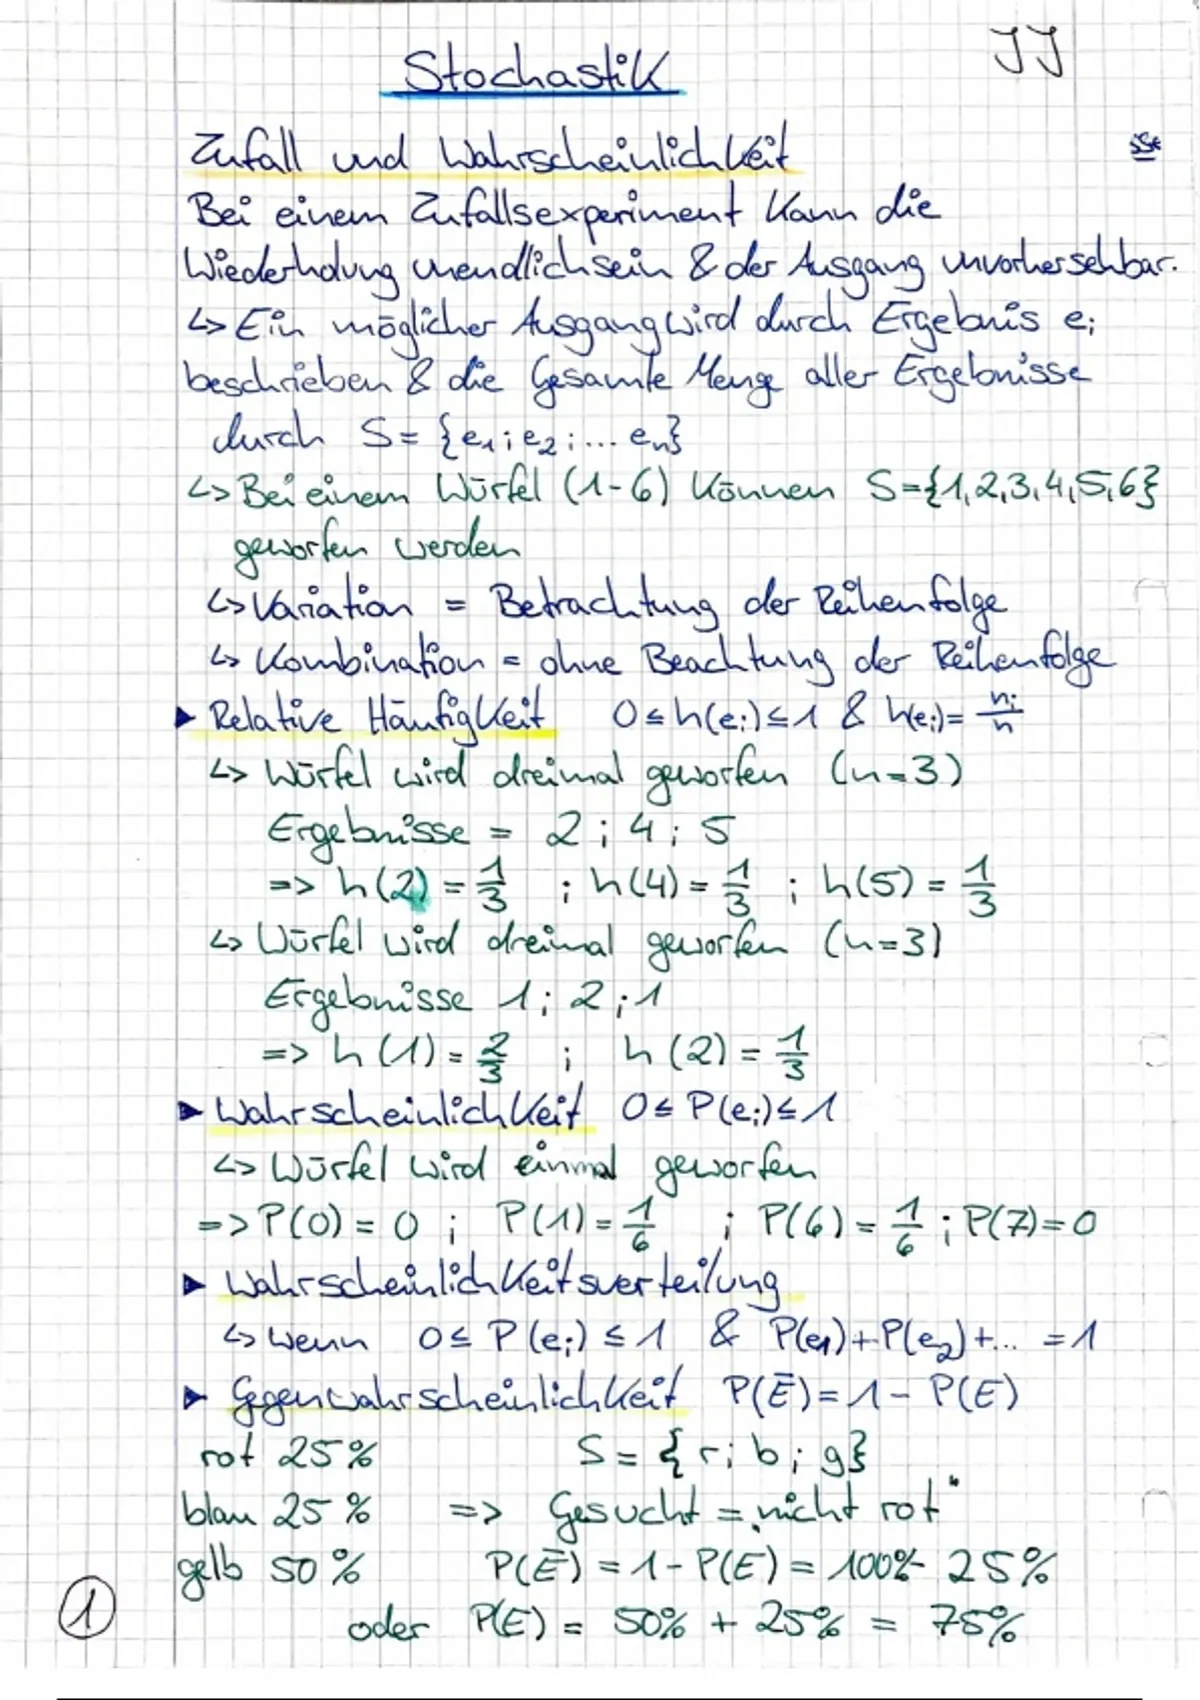 JJ
Stochastik
Zufall und Wahrscheinlichkeit
Bei einem Zufallsexperiment kann die
Wiederholung unendlich sein & der Ausgang unvorhersehbar.
↳ Ein möglicher Ausgang wird durch Ergebnis eᵢ
beschrieben & die Gesamte Menge aller Ergebnisse
durch S = {e₁; e₂; ... eₙ}
↳ Bei einem Würfel (1-6) können S={1,2,3,4,5,6}
geworfen werden
↳ Variation = Betrachtung der Reihenfolge
↳ Kombination = ohne Beachtung der Reihenfolge
▶ Relative Häufigkeit 0≤h(eᵢ)≤1 & h(eᵢ)= nᵢ/n
↳ Würfel wird dreimal geworfen (n=3)
Ergebnisse = 2 ; 4 ; 5
=> h(2) = 1/3 ; h(4) = 1/3 ; h(5) = 1/3
↳ Würfel wird dreimal geworfen (n=3)
Ergebnisse 1 ; 2 ; 1
=> h(1) = 2/3 ; h(2) = 1/3
▶ Wahrscheinlichkeit 0≤P(eᵢ)≤1
↳ Würfel wird einmal geworfen
=> P(0) = 0 ; P(1) = 1/6 ; P(6) = 1/6 ; P(7) = 0
▶ Wahrscheinlichkeitsverteilung
↳ wenn 0≤P(eᵢ)≤1 & P(e₁)+P(e₂)+... = 1
▶ Gegenwahrscheinlichkeit P(Ē) = 1 - P(E)
rot 25% S = {r; b; g}
blau 25% => Gesucht = „nicht rot"
gelb 50% P(Ē) = 1 - P(E) = 100% - 25%
oder P(E) = 50% + 25% = 75%
1